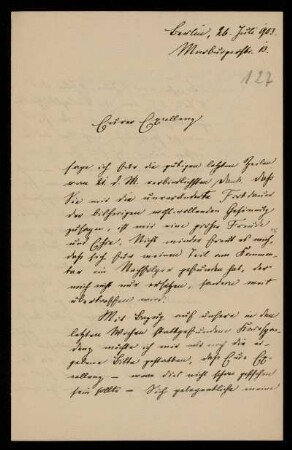 Berlin, 26. Juli 903.
Marburgerstr. 13.
127
Eurer Excellenz
sage ich für die gütigen letzten Zeilen
vom d. M. verbindlichsten Dank. Daß
Sie mir die unveränderte Fortdauer
der bisherigen wohlwollenden Gesinnung
zusagen, ist mir eine große Freude
und Ehre. Nicht minder freut es mich,
daß sich für meinen Teil am Kommen-
tar ein Nachfolger gefunden hat, der
mich nicht nur ersetzen, sondern weit
übertreffen wird.
Mit Bezug auf unsere in den
letzten Wochen stattgefundene
möchte ich mir nur noch die er-
gebene Bitte gestatten, daß Eure Ex-
cellenz – wenn dies nicht schon geschehen
sein sollte – Sich gelegentlich meine